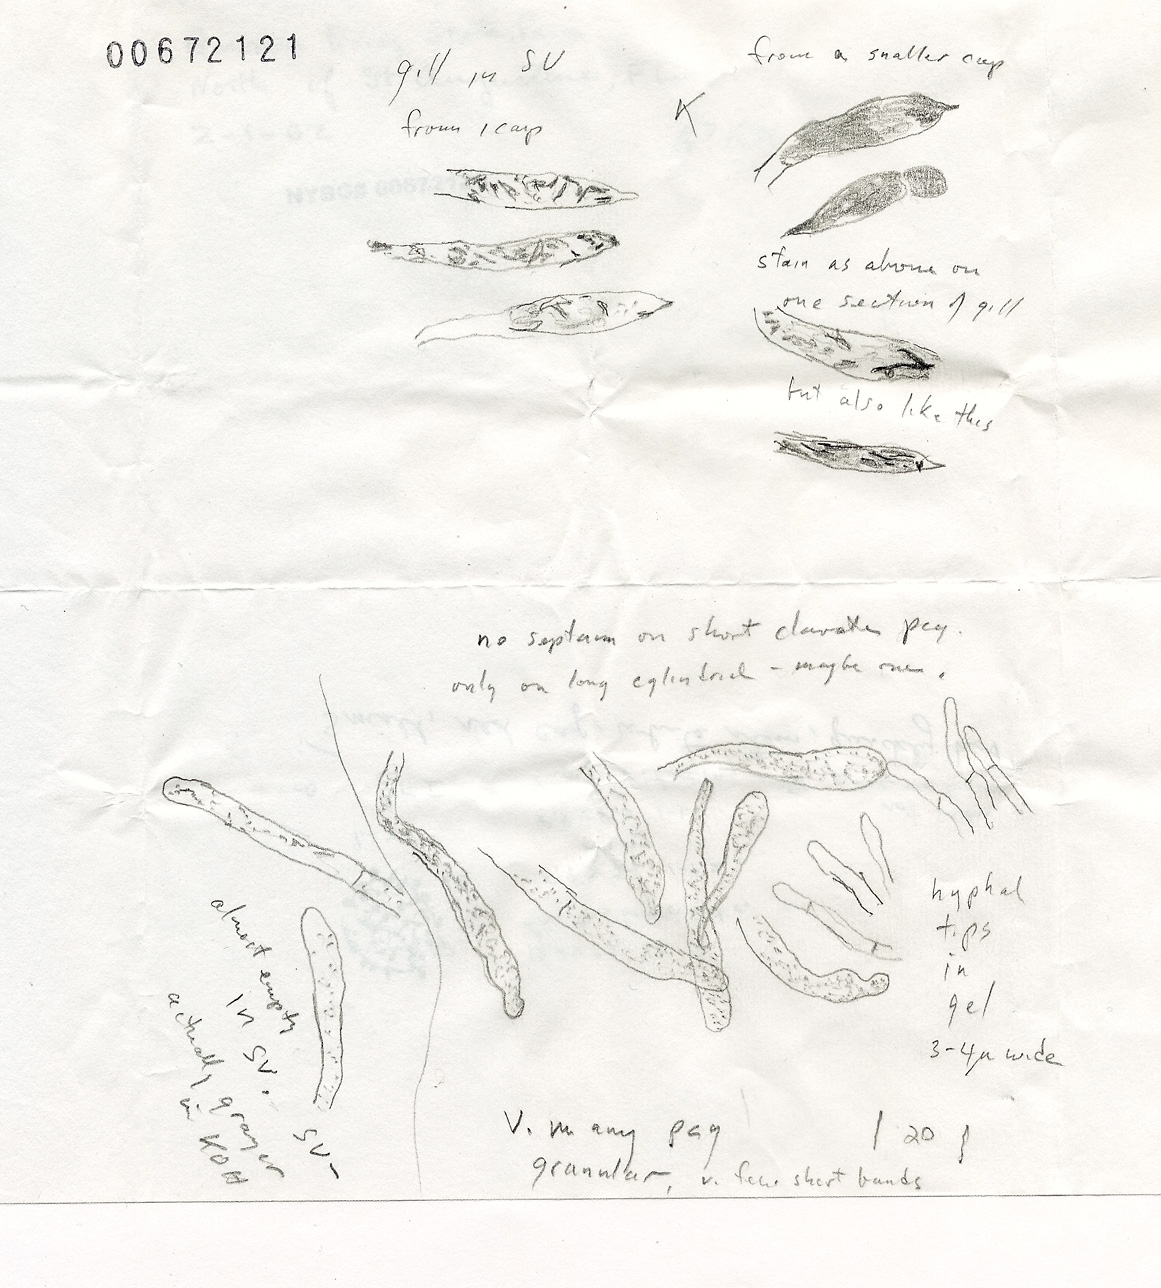 00672121
gill in SV
from 1 cap
from a smaller cap
stain as above on
one section of gill
but also like this
no septum on short clavate pcy.
only on long cylindrical - maybe one.
hyphal
tips
in
gel
3-4µ wide
almost empty
in SV.
actually grayer
in KOH
SV-
V. many pcy
granular, v. few short bands
20
NYBG 006721